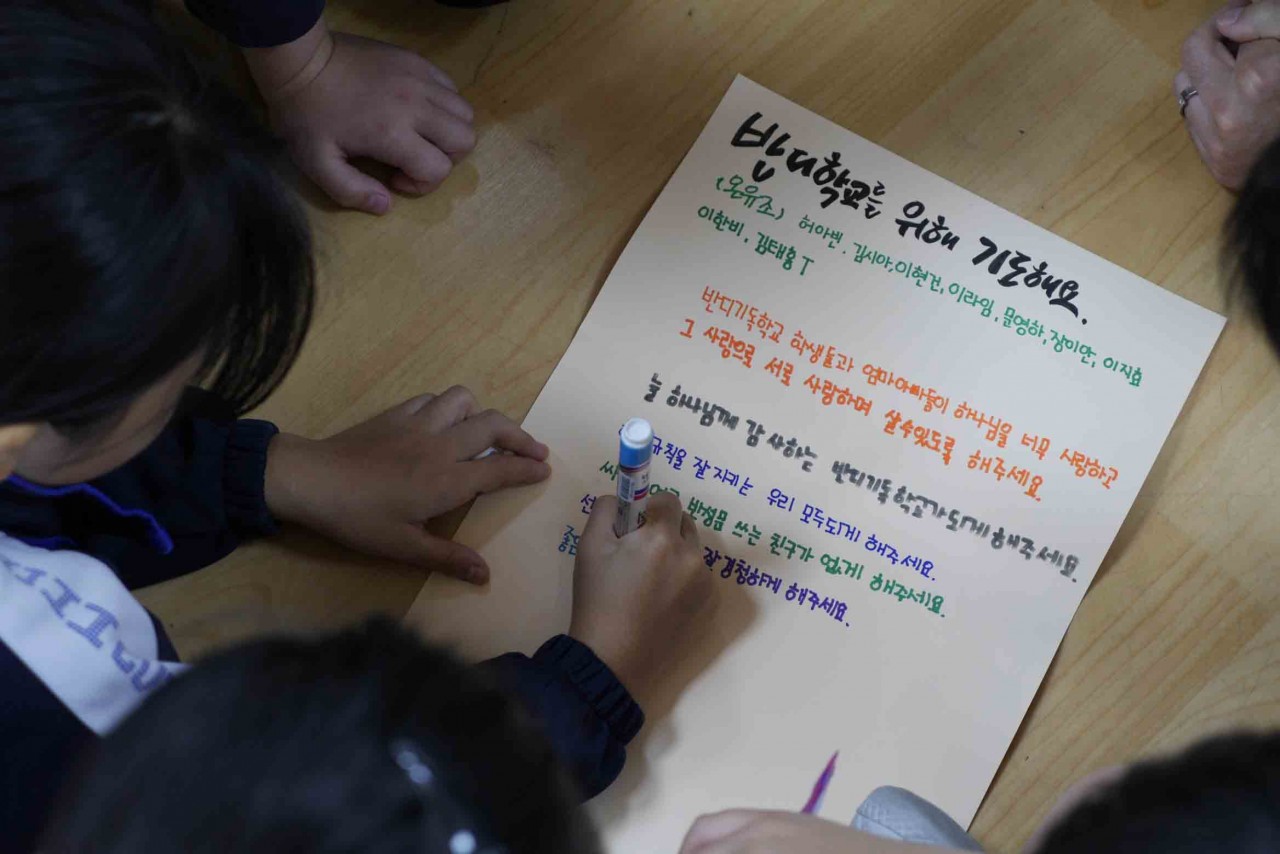 반디학교를 위해 기도해요.
(온유조) 허아벤. 김시아, 이현건, 이라임, 문영하, 장이안, 이지효
이한비. 김태홍 T
반디기독학교 학생들과 엄마아빠들이 하나님을 너무 사랑하고
그 사랑으로 서로 사랑하며 살 수 있도록 해주세요.
늘 하나님께 감사하는 반디기독학교가 되게 해주세요.
규칙을 잘 지키는 우리 모두되게 해주세요.
반성문 쓰는 친구가 없게 해주세요.
잘 경청하게 해주세요.